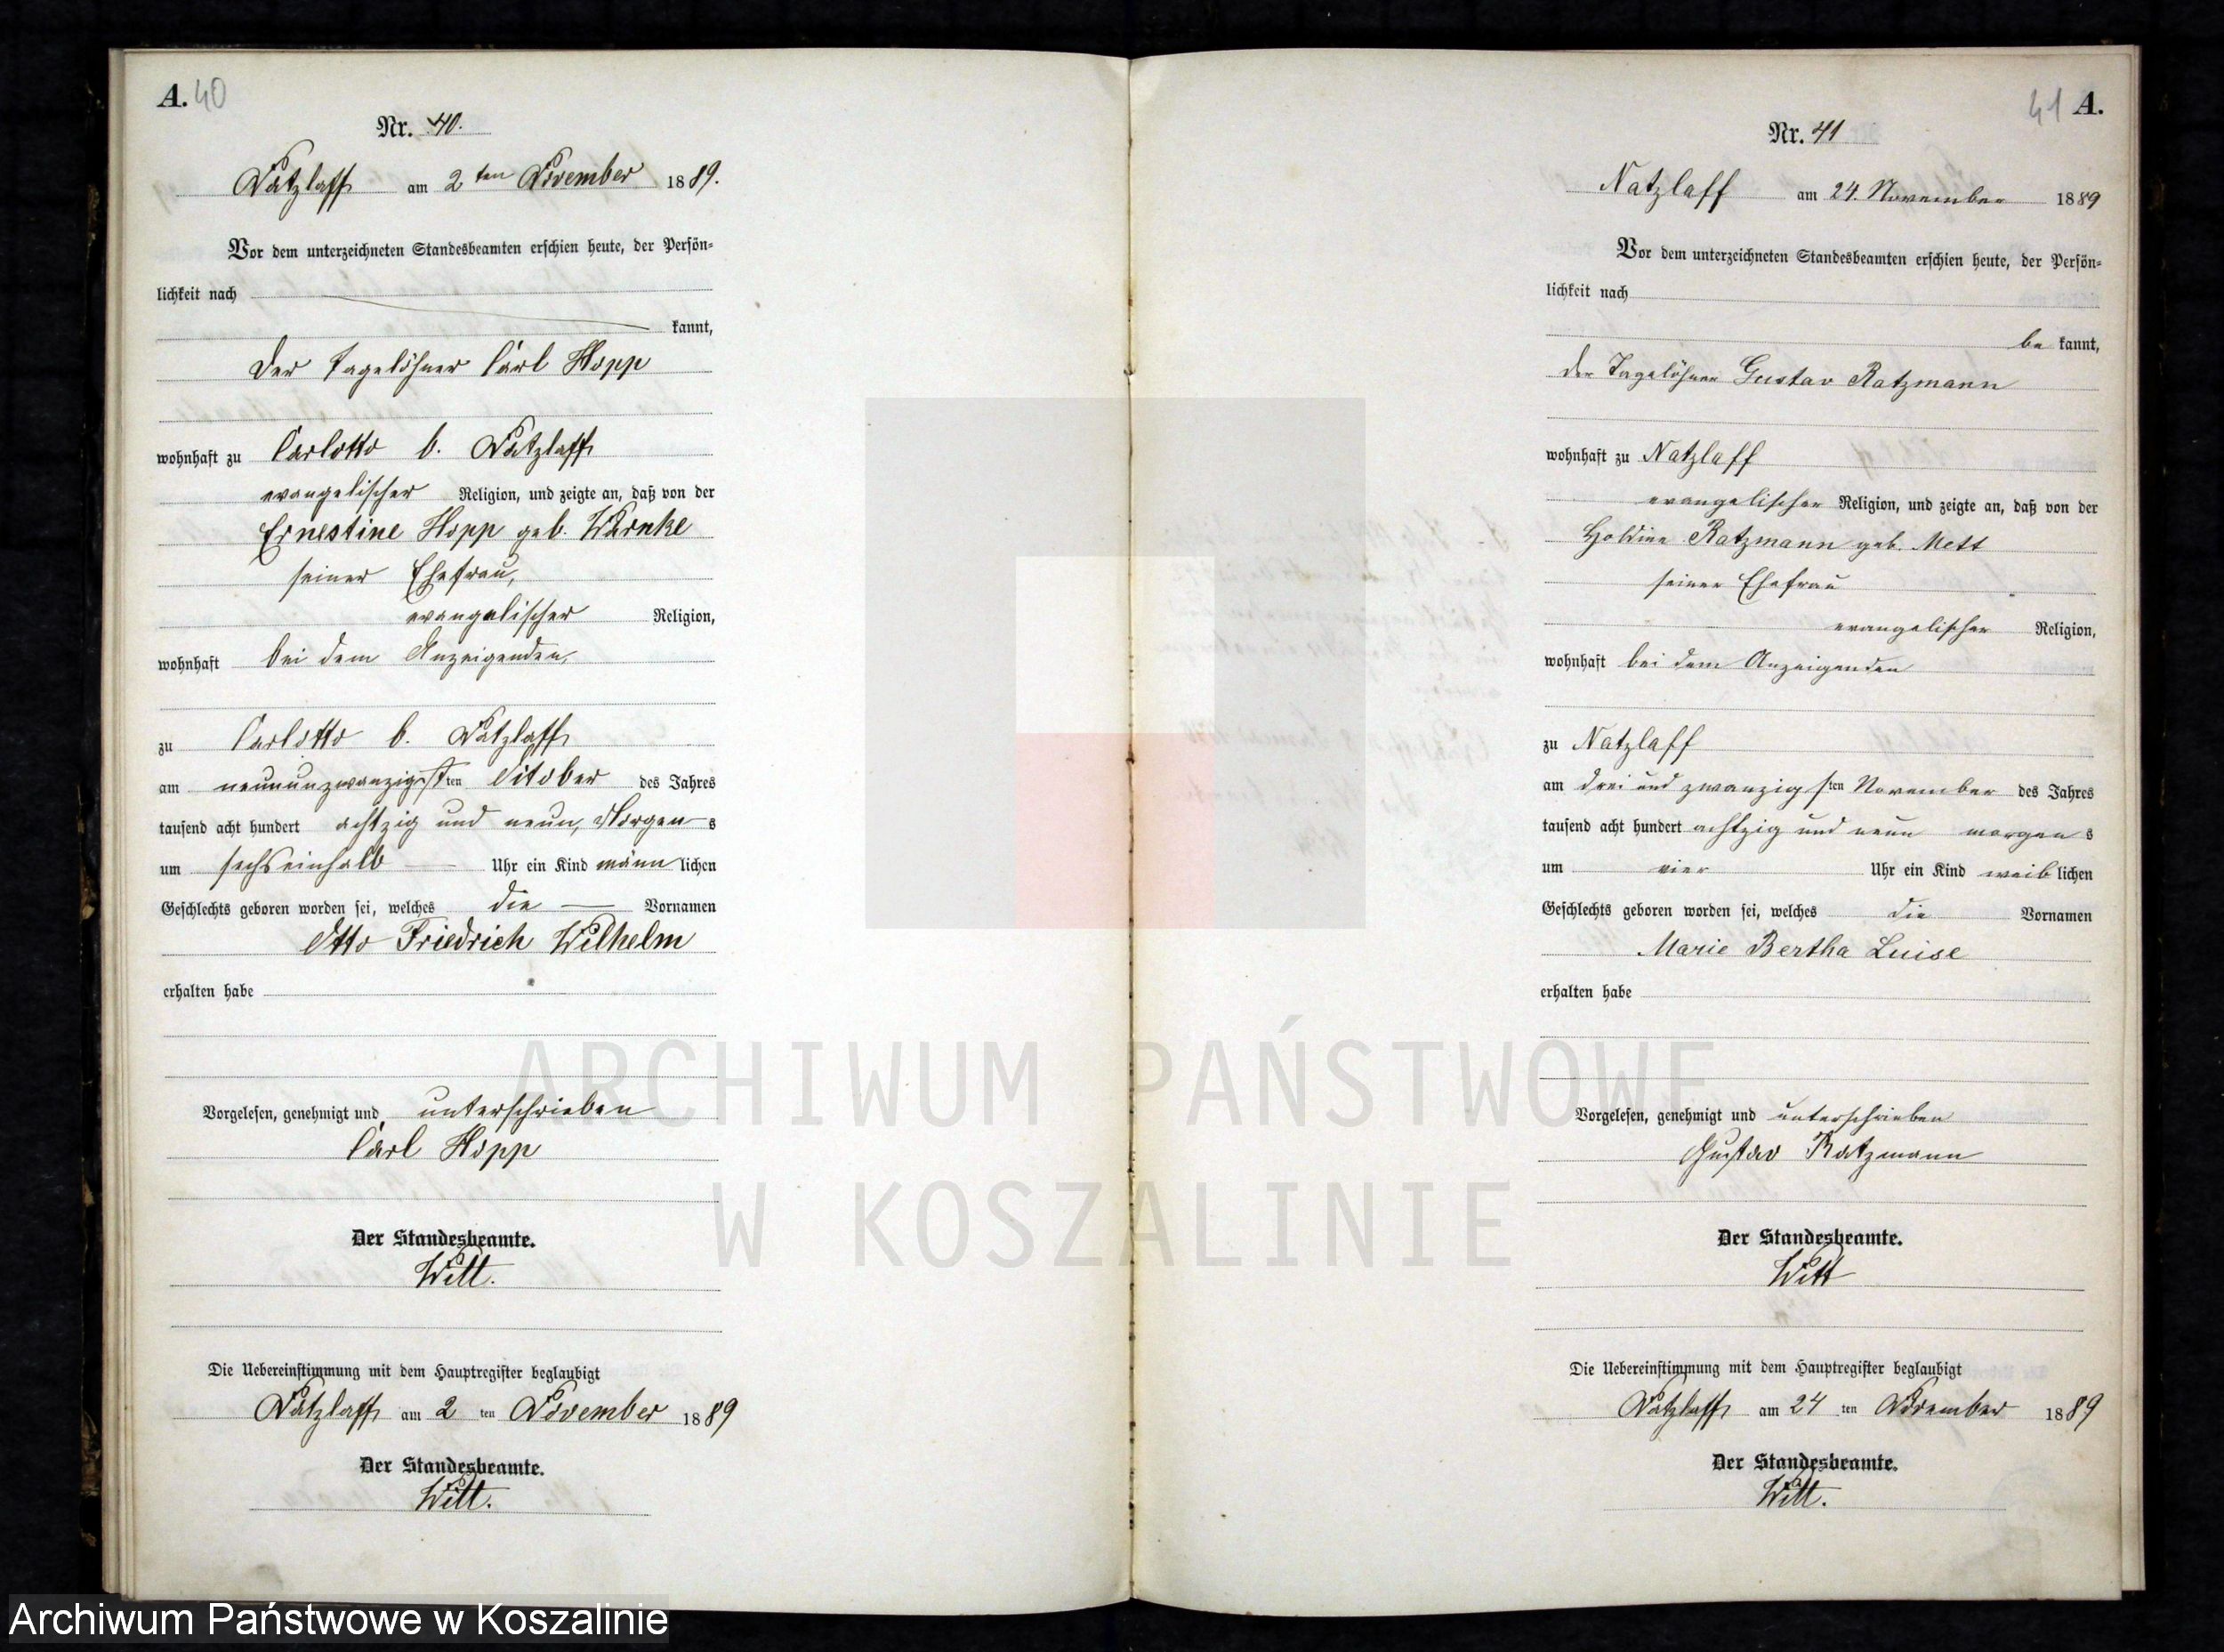 A. 40
Nr. 40.
Natzlaff am 2ten November 1889.
Vor dem unterzeichneten Standesbeamten erschien heute, der Persön-
lichkeit nach
kannt,
der Tagelöhner Carl Hopp
wohnhaft zu Carlotto b. Natzlaff
evangelischer Religion, und zeigte an, daß von der
Ernestine Hopp geb. Warnke
seiner Ehefrau,
evangelischer Religion,
wohnhaft bei dem Anzeigenden,
zu Carlotto b. Natzlaff
am neunundzwanzigsten Oktober des Jahres
tausend acht hundert achtzig und neun, Morgens
um sechseinhalb Uhr ein Kind männlichen
Geschlechts geboren worden sei, welches die Vornamen
Otto Friedrich Wilhelm
erhalten habe
Vorgelesen, genehmigt und unterschrieben
Carl Hopp
Der Standesbeamte.
Witt.
Die Uebereinstimmung mit dem Hauptregister beglaubigt
Natzlaff am 2 ten November 1889
Der Standesbeamte.
Witt.
41 A.
Nr. 41
Natzlaff am 24. November 1889
Vor dem unterzeichneten Standesbeamten erschien heute, der Persön-
lichkeit nach
be kannt,
der Tagelöhner Gustav Ratzmann
wohnhaft zu Natzlaff
evangelischer Religion, und zeigte an, daß von der
Holdine Ratzmann geb. Mett
seiner Ehefrau
evangelischer Religion,
wohnhaft bei dem Anzeigenden
zu Natzlaff
am drei und zwanzigsten November des Jahres
tausend acht hundert achtzig und neun morgens
um vier Uhr ein Kind weiblichen
Geschlechts geboren worden sei, welches die Vornamen
Marie Bertha Luise
erhalten habe
Vorgelesen, genehmigt und unterschrieben
Gustav Ratzmann
Der Standesbeamte.
Witt
Die Uebereinstimmung mit dem Hauptregister beglaubigt
Natzlaff am 24 ten November 1889
Der Standesbeamte.
Witt.
ARCHIWUM PAŃSTWOWE
W KOSZALINIE
Archiwum Państwowe w Koszalinie